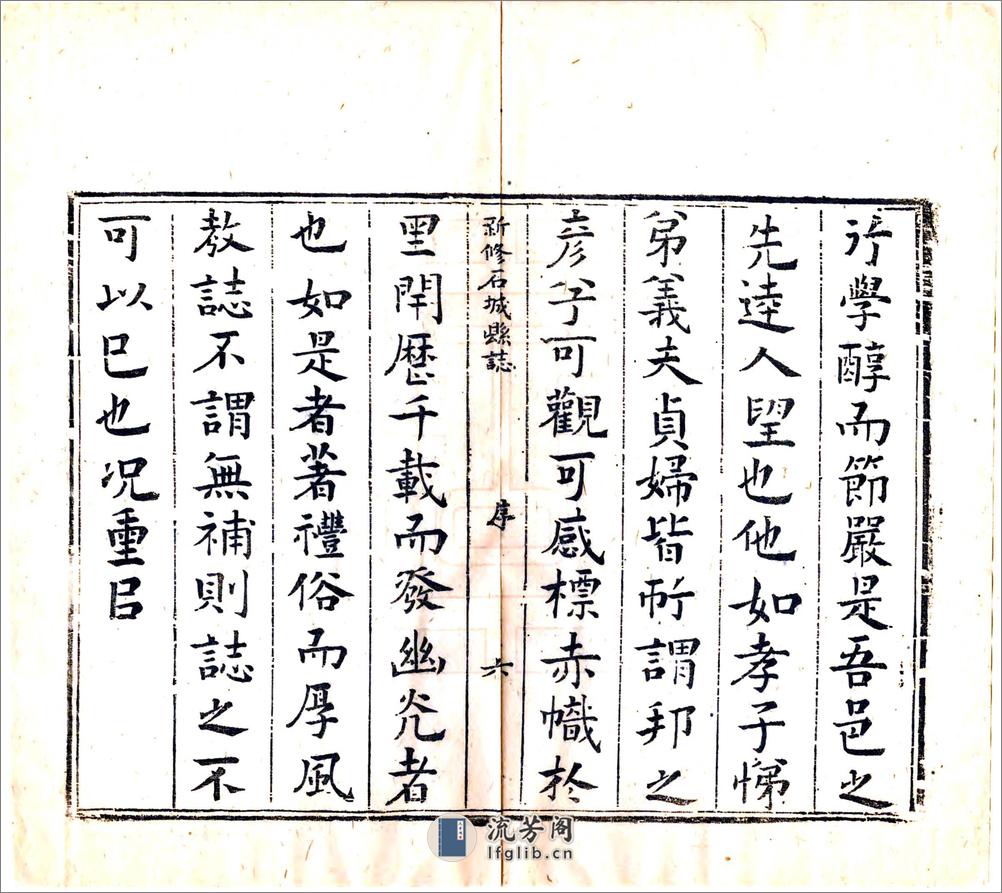 行學醇而節嚴是吾邑之
先逵人望也他如孝子悌
弟義夫貞婦皆所謂邦之
彦兮可觀可感標赤幟於
新修石城縣誌
序
六
里閈歷千載而發幽光者
也如是者著禮俗而厚風
教誌不謂無補則誌之不
可以已也况重以
流芳阁
lfglib.cn